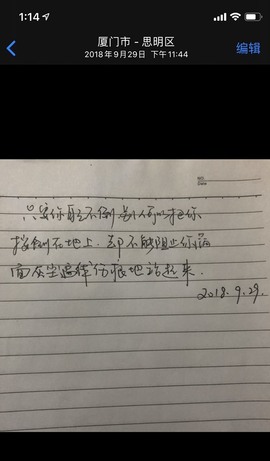 1:14
厦门市 – 思明区
2018年9月29日 下午11:44
编辑
NO.
Date
只要你 不倒 别人可以把你
按倒在地上. 却不能阻止你满
面灰尘遍体伤痕地站起来.
2018.9.29.